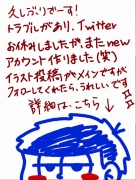 久しぶりでーす!
トラブルがあり、Twitter
お休みしましたが、またnew
アカウント作りました(笑)
イラスト投稿がメインですが
フォローしてくれたら、うれしいです
詳細は、こちら↓